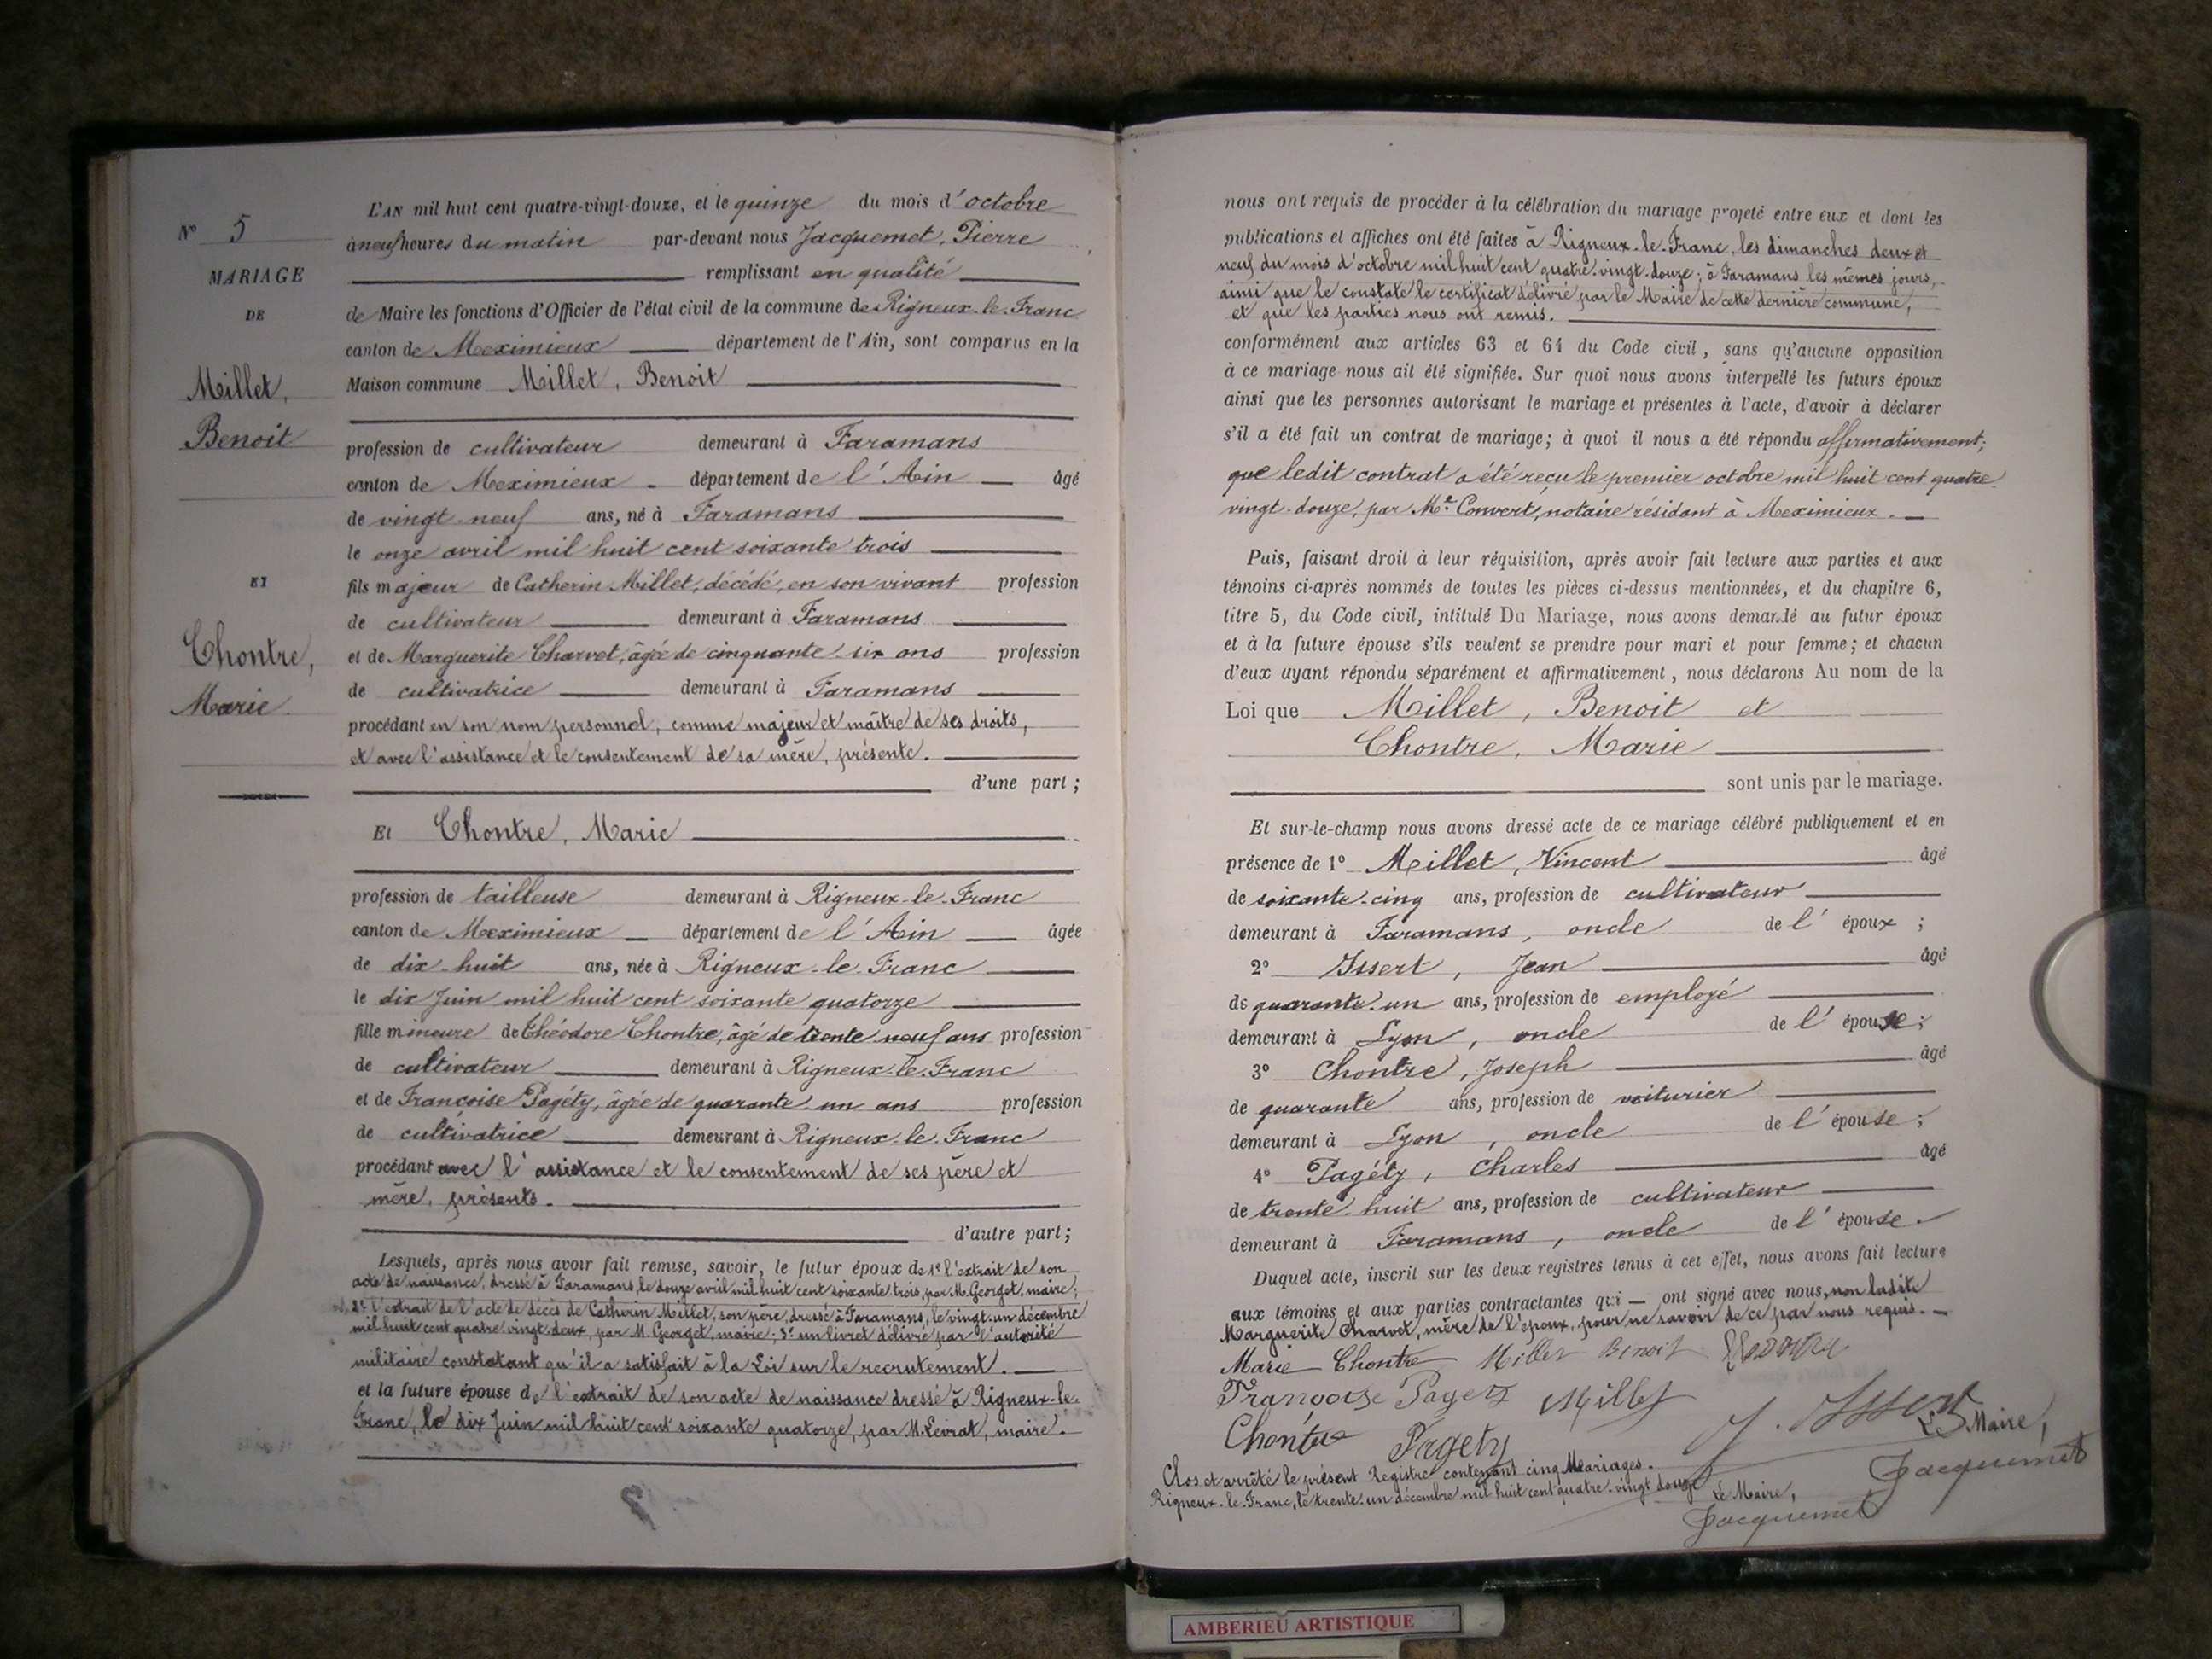 N° 5
MARIAGE
DE
Millet,
Benoit
ET
Chontre,
Marie
L'AN mil huit cent quatre-vingt-douze, et le quinze du mois d'octobre
à neuf heures du matin par-devant nous Jacquemet, Pierre
remplissant en qualité
de Maire les fonctions d'Officier de l'état civil de la commune de Rigneux-le-Franc
canton de Meximieux département de l'Ain, sont comparus en la
Maison commune Millet, Benoit
profession de cultivateur demeurant à Faramans
canton de Meximieux département de l'Ain âgé
de vingt-neuf ans, né à Faramans
le onze avril mil huit cent soixante trois
fils majeur de Catherin Millet, décédé, en son vivant profession
de cultivateur demeurant à Faramans
et de Marguerite Charvet, âgée de cinquante-six ans profession
de cultivatrice demeurant à Faramans
procédant en son nom personnel, comme majeur et maître de ses droits,
et avec l'assistance et le consentement de sa mère, présente.
d'une part ;
Et Chontre, Marie
profession de tailleuse demeurant à Rigneux-le-Franc
canton de Meximieux département de l'Ain âgée
de dix-huit ans, née à Rigneux-le-Franc
le dix Juin mil huit cent soixante quatorze
fille mineure de Théodore Chontre, âgé de trente neuf ans profession
de cultivateur demeurant à Rigneux-le-Franc
et de Françoise Pagéty, âgée de quarante-un ans profession
de cultivatrice demeurant à Rigneux-le-Franc
procédant avec l'assistance et le consentement de ses père et
mère, présents.
d'autre part ;
Lesquels, après nous avoir fait remise, savoir, le futur époux de 1° l'extrait de son
acte de naissance, dressé à Faramans, le douze avril mil huit cent soixante trois, par M. Georget, maire ;
2° l'extrait de l'acte de décès de Catherin Millet, son père, dressé à Faramans, le vingt-un décembre
mil huit cent quatre-vingt-deux, par M. Georget, maire ; 3° un livret délivré par l'autorité
militaire constatant qu'il a satisfait à la Loi sur le recrutement.
et la future épouse de l'extrait de son acte de naissance dressé à Rigneux-le-
Franc, le dix Juin mil huit cent soixante quatorze, par M. Levrat, maire.
nous ont requis de procéder à la célébration du mariage projeté entre eux et dont les
publications et affiches ont été faites à Rigneux-le-Franc, les dimanches deux et
neuf du mois d'octobre mil huit cent quatre-vingt-douze ; à Faramans les mêmes jours,
ainsi que le constate le certificat délivré par le Maire de cette dernière commune,
et que les parties nous ont remis.
conformément aux articles 63 et 64 du Code civil, sans qu'aucune opposition
à ce mariage nous ait été signifiée. Sur quoi nous avons interpellé les futurs époux
ainsi que les personnes autorisant le mariage et présentes à l'acte, d'avoir à déclarer
s'il a été fait un contrat de mariage ; à quoi il nous a été répondu affirmativement ;
que ledit contrat a été reçu le premier octobre mil huit cent quatre-
vingt-douze, par Me Convert, notaire résidant à Meximieux.
Puis, faisant droit à leur réquisition, après avoir fait lecture aux parties et aux
témoins ci-après nommés de toutes les pièces ci-dessus mentionnées, et du chapitre 6,
titre 5, du Code civil, intitulé Du Mariage, nous avons demandé au futur époux
et à la future épouse s'ils veulent se prendre pour mari et pour femme ; et chacun
d'eux ayant répondu séparément et affirmativement, nous déclarons Au nom de la
Loi que Millet, Benoit et
Chontre, Marie
sont unis par le mariage.
Et sur-le-champ nous avons dressé acte de ce mariage célébré publiquement et en
présence de 1° Millet, Vincent âgé
de soixante-cinq ans, profession de cultivateur
demeurant à Faramans, oncle de l'époux ;
2° Issert, Jean âgé
de quarante-un ans, profession de employé
demeurant à Lyon, oncle de l'épouse ;
3° Chontre, Joseph âgé
de quarante ans, profession de voiturier
demeurant à Lyon, oncle de l'épouse ;
4° Pagéty, Charles âgé
de trente-huit ans, profession de cultivateur
demeurant à Faramans, oncle de l'épouse.
Duquel acte, inscrit sur les deux registres tenus à cet effet, nous avons fait lecture
aux témoins et aux parties contractantes qui ont signé avec nous, non ladite
Marguerite Charvet, mère de l'époux, pour ne savoir de ce par nous requis.
Marie Chontre Millet Benoit
Françoise Pagety Millet J. Issert
Chontre Pagety Le Maire,
Jacquemet
Clos et arrêté le présent Registre contenant cinq Mariages.
Rigneux-le-Franc, le trente-un décembre mil huit cent quatre-vingt douze Le Maire,
Jacquemet
AMBERIEU ARTISTIQUE